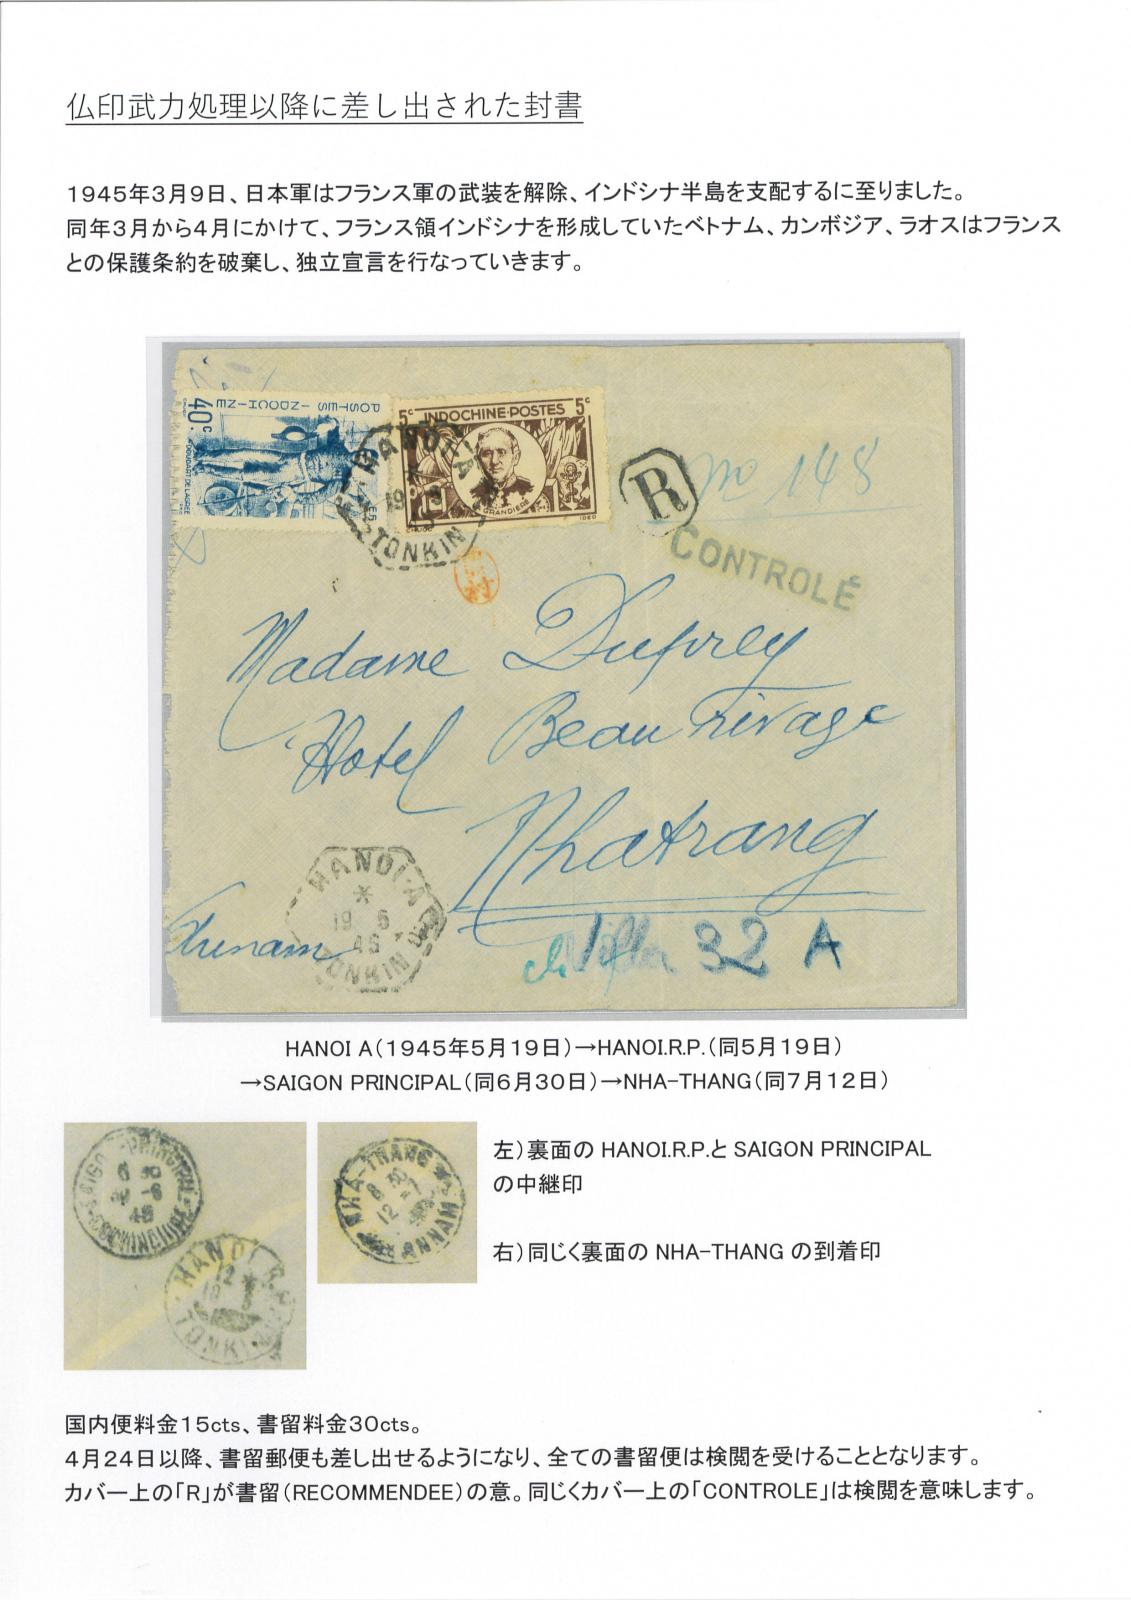 仏印武力処理以降に差し出された封書
1945年3月9日、日本軍はフランス軍の武装を解除、インドシナ半島を支配するに至りました。
同年3月から4月にかけて、フランス領インドシナを形成していたベトナム、カンボジア、ラオスはフランス
との保護条約を破棄し、独立宣言を行なっていきます。
POSTES INDOCHINE
40c
DOUDART DE LAGREE
5c INDOCHINE·POSTES 5c
GRANDIERE
HANOI
19
TONKIN
R
no 148
CONTROLÉ
Madame Duprey
Hotel Beau rivage
Nhatrang
HANOI-A
19 5
45
TONKIN
Annam
32 A
HANOI A（1945年5月19日）→HANOI.R.P.（同5月19日）
→SAIGON PRINCIPAL（同6月30日）→NHA-THANG（同7月12日）
SAIGON-PRINCIPAL
6 30
30-6
45
COCHINCHINE
HANOI R.P.
12
TONKIN
NHA-TRANG
8 30
12-7
ANNAM
左）裏面の HANOI.R.P.と SAIGON PRINCIPAL
の中継印
右）同じく裏面の NHA-THANG の到着印
国内便料金15cts、書留料金30cts。
4月24日以降、書留郵便も差し出せるようになり、全ての書留便は検閲を受けることとなります。
カバー上の「R」が書留（RECOMMENDEE）の意。同じくカバー上の「CONTROLE」は検閲を意味します。